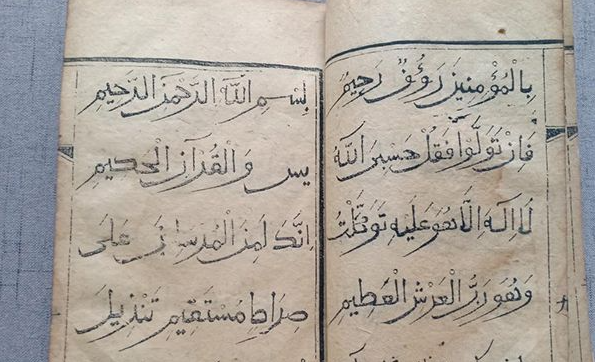 بِالْمُؤْمِنِينَ رَؤُفٌ رَحِيمٌ
فَاِنْ تَوَلَّوْا فَقُلْ حَسْبِىَ اللّٰهُ
لَا اِلٰهَ اِلَّا هُوَ عَلَيْهِ تَوَكَّلْتُ
وَهُوَ رَبُّ الْعَرْشِ الْعَظِيمِ
بِسْمِ اللّٰهِ الرَّحْمٰنِ الرَّحِيمِ
يس وَالْقُرْآنِ الْحَكِيمِ
اِنَّكَ لَمِنَ الْمُرْسَلِينَ عَلَى
صِرَاطٍ مُسْتَقِيمٍ تَنْزِيلَ